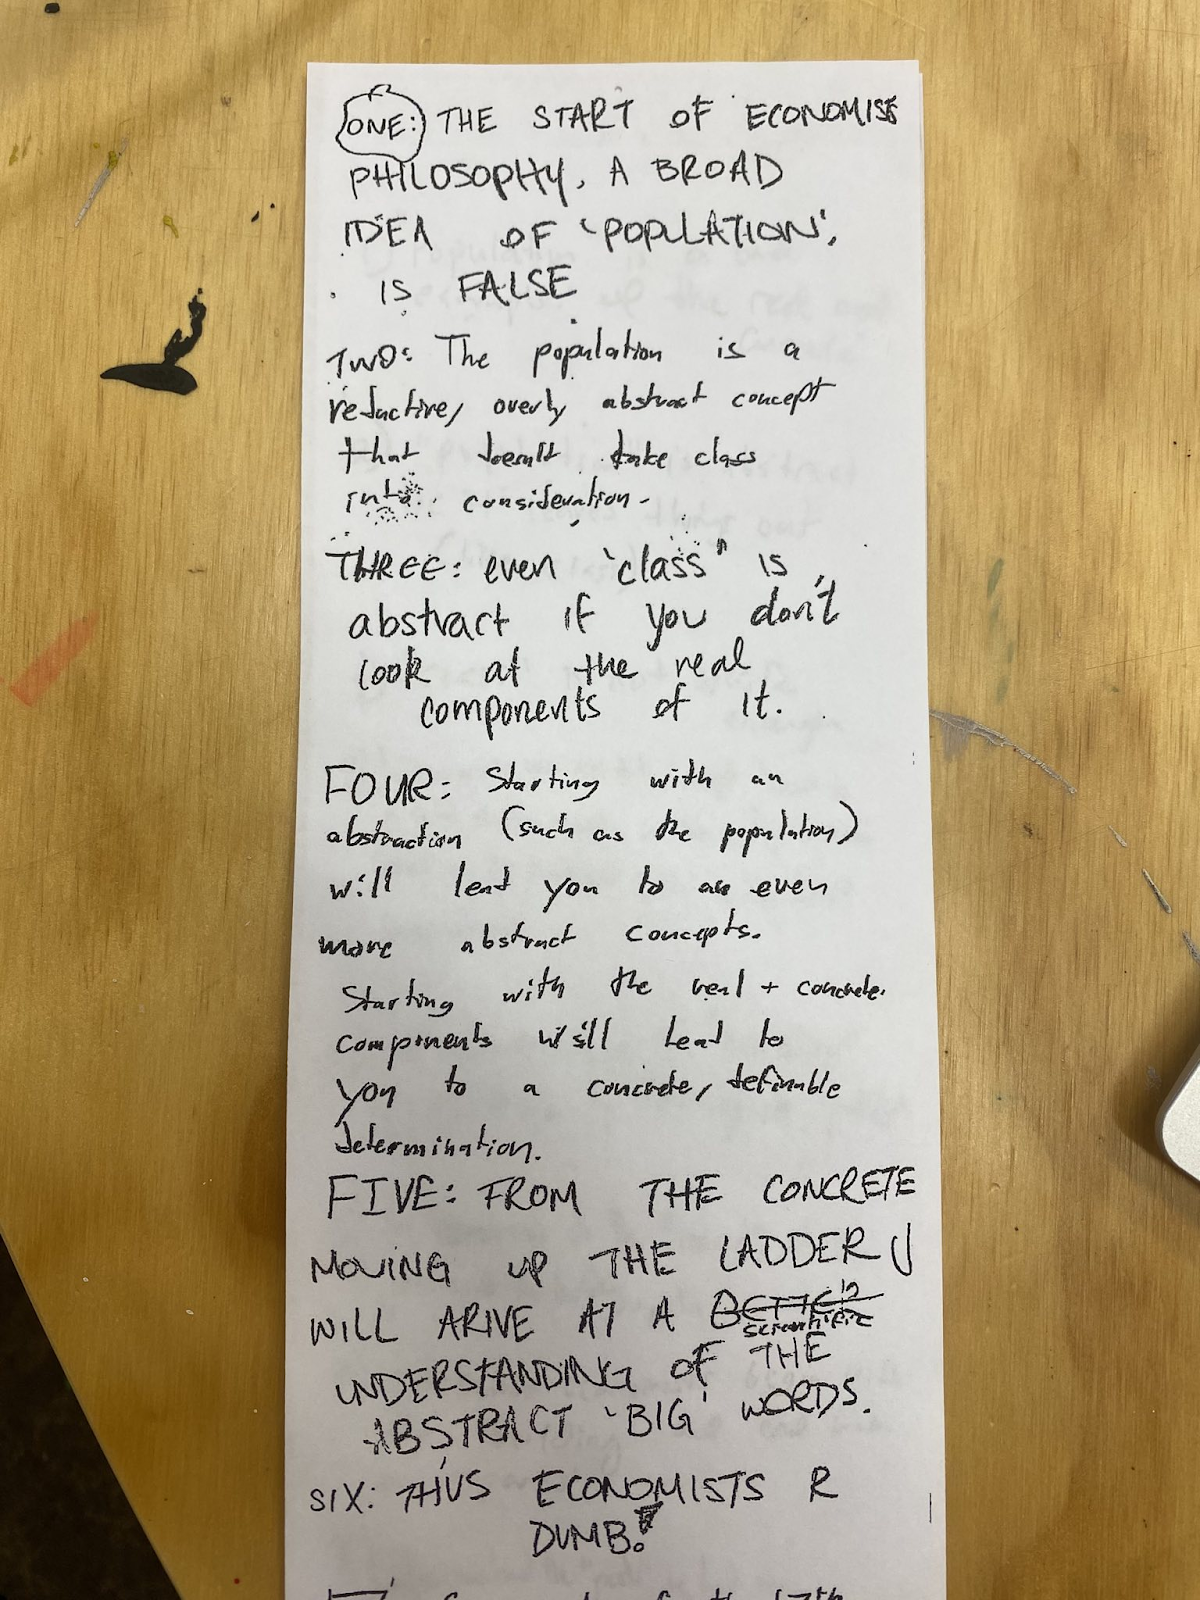 ONE: THE START OF ECONOMISTS
PHILOSOPHY, A BROAD
IDEA OF 'POPULATION',
IS FALSE
TWO: The population is a
reductive, overly abstract concept
that doesn't take class
into consideration.
THREE: even 'class" is
abstract if you don't
look at the real
components of it.
FOUR: Starting with an
abstraction (such as the population)
will lead you to an even
more abstract concepts.
Starting with the real + concrete
components will lead to
you to a concrete, definable
determination.
FIVE: FROM THE CONCRETE
MOVING UP THE LADDER U
WILL ARIVE AT A BETTER
scientific
UNDERSTANDING OF THE
ABSTRACT 'BIG' WORDS.
SIX: THUS ECONOMISTS R
DUMB!